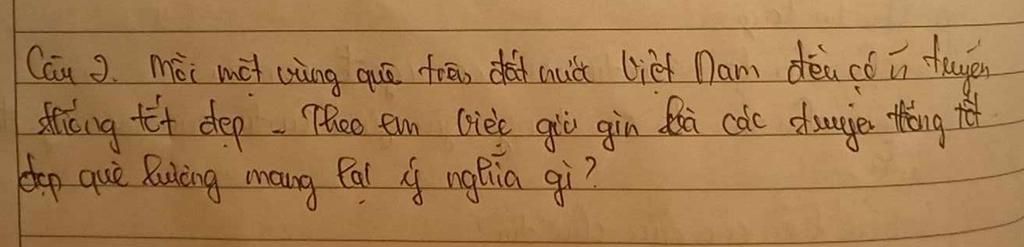 Câu 2. Mỗi một vùng quê trên đất nước Việt Nam đều có n truyền
thống tốt đẹp - Theo em việc giữ gìn các truyền thống tốt
đẹp quê hương mang lại ý nghĩa gì?